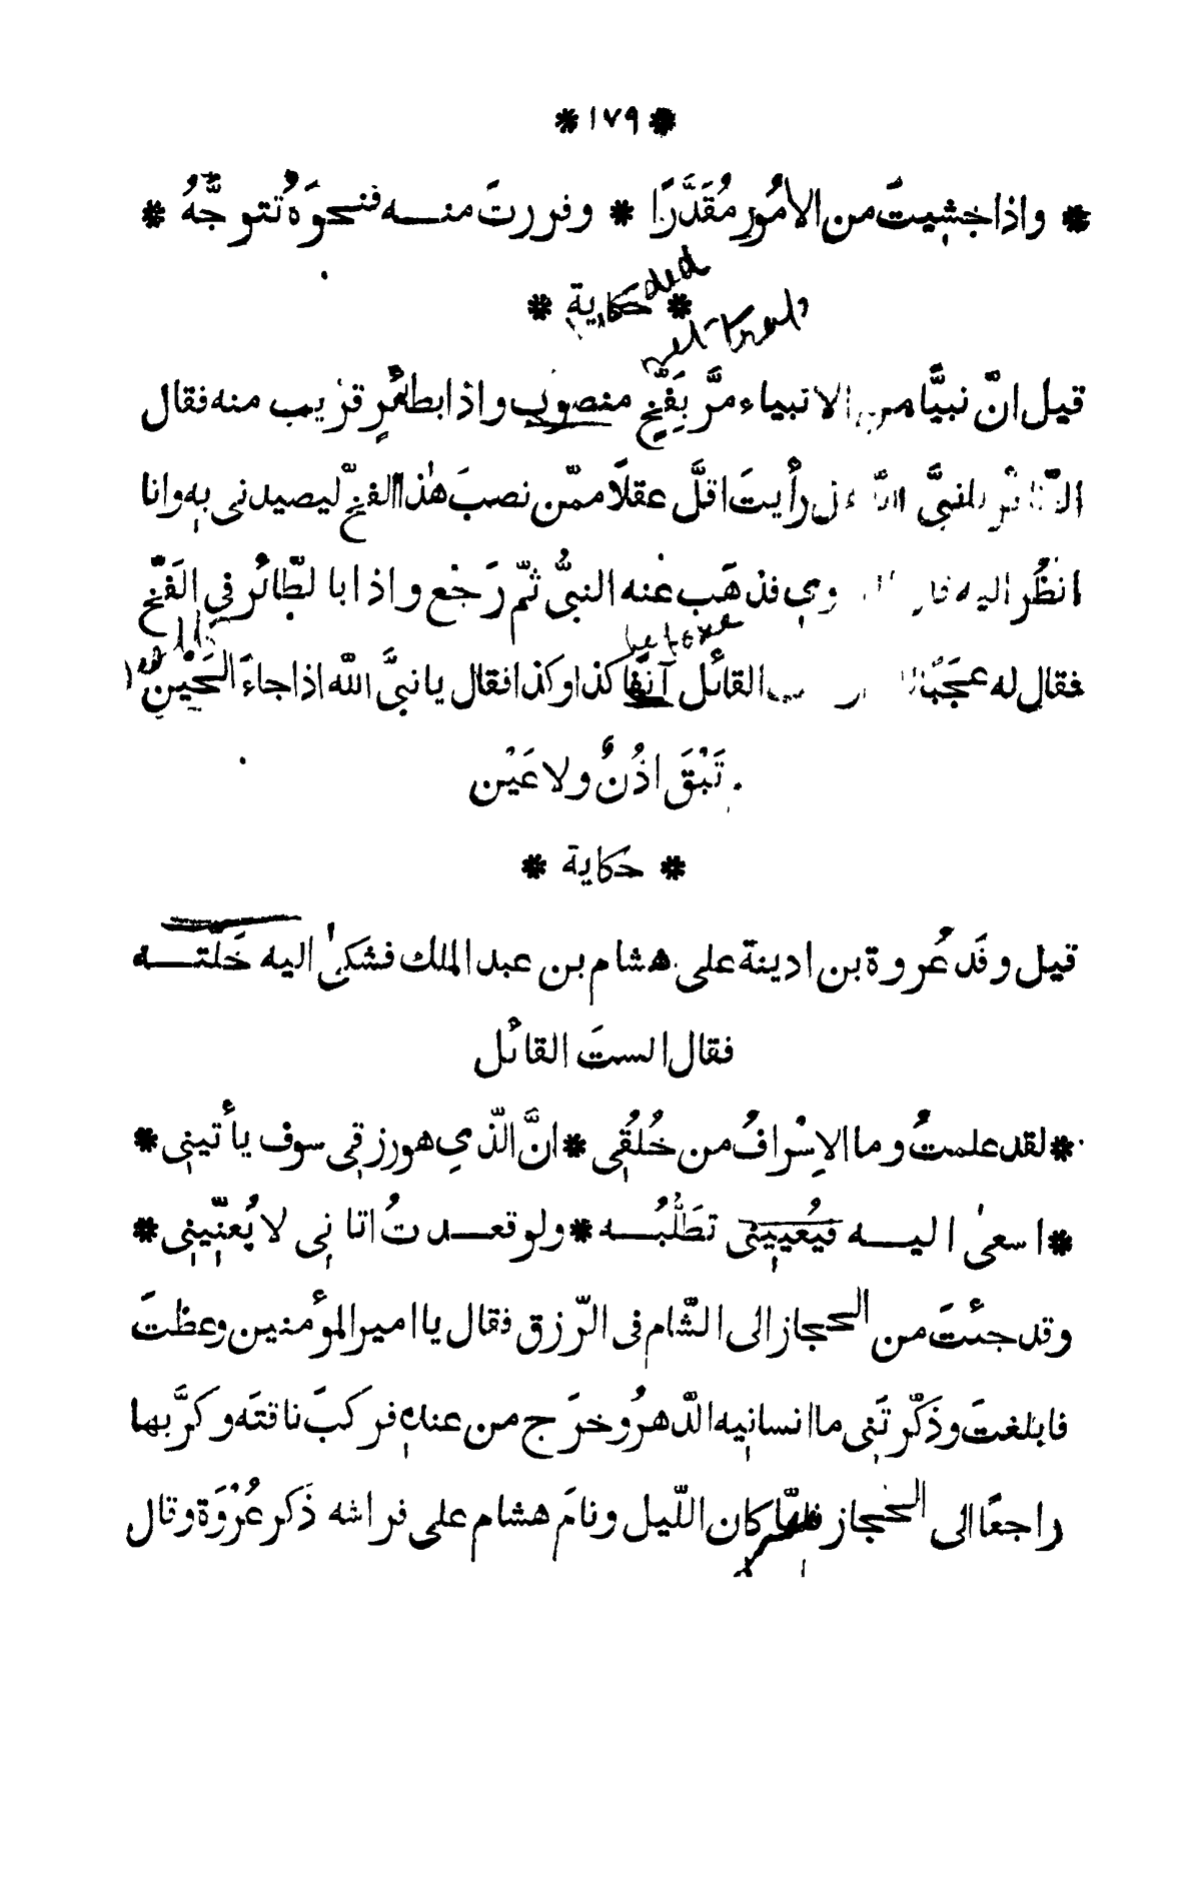 * ١٧٩ *
* واذا خشيتَ من الأمُورِ مُقَدَّرًا * وفررتَ منه فنحوَهُ تتوجَّهُ *
* حَكاية *
قيل انّ نبيًّا من الانبياء مرَّ بِفَخٍّ منصوب واذا بطائرٍ قريب منه فقال
الطّائر للنبىّ رأيتَ اقلَّ عقلًا ممّن نصبَ هٰذا الفخّ ليصيدنى به وانا
انظُر اليه فذهَب عنه النبىُّ ثمّ رَجَع واذا بالطّائر في الفَخّ
فقال له عجَبًا القائل آنفًا كذا وكذا فقال يا نبىَّ اللّه اذا جاءَ الحَيْنُ
تَبْقَ اذُنٌ ولا عَيْن
* حكاية *
قيل وفَد عُروة بن ادينة على هشام بن عبد الملك فشَكىٰ اليه خَلّتـــه
فقال الستَ القائل
* لقد علمتُ وما الاِسْرافُ من خُلُقي * انَّ الّذي هو رزقي سوف يأتيني *
* اسعىٰ اليـــه فيُعييني تطَلُّبُـــه * ولو قعـــدتُ اتاني لا يُعنّيني *
وقد جئتَ من الحجاز الى الشّام فى الرّزق فقال يا امير المؤمنين وعظتَ
فابلغتَ وذَكّرتَنى ما انسانيه الدّهرُ وخرَج من عنده فركبَ ناقتَه وكرَّ بها
راجعًا الى الحجاز فلمّا كان اللّيل ونامَ هشام على فراشه ذَكر عُرْوَة وقال
before